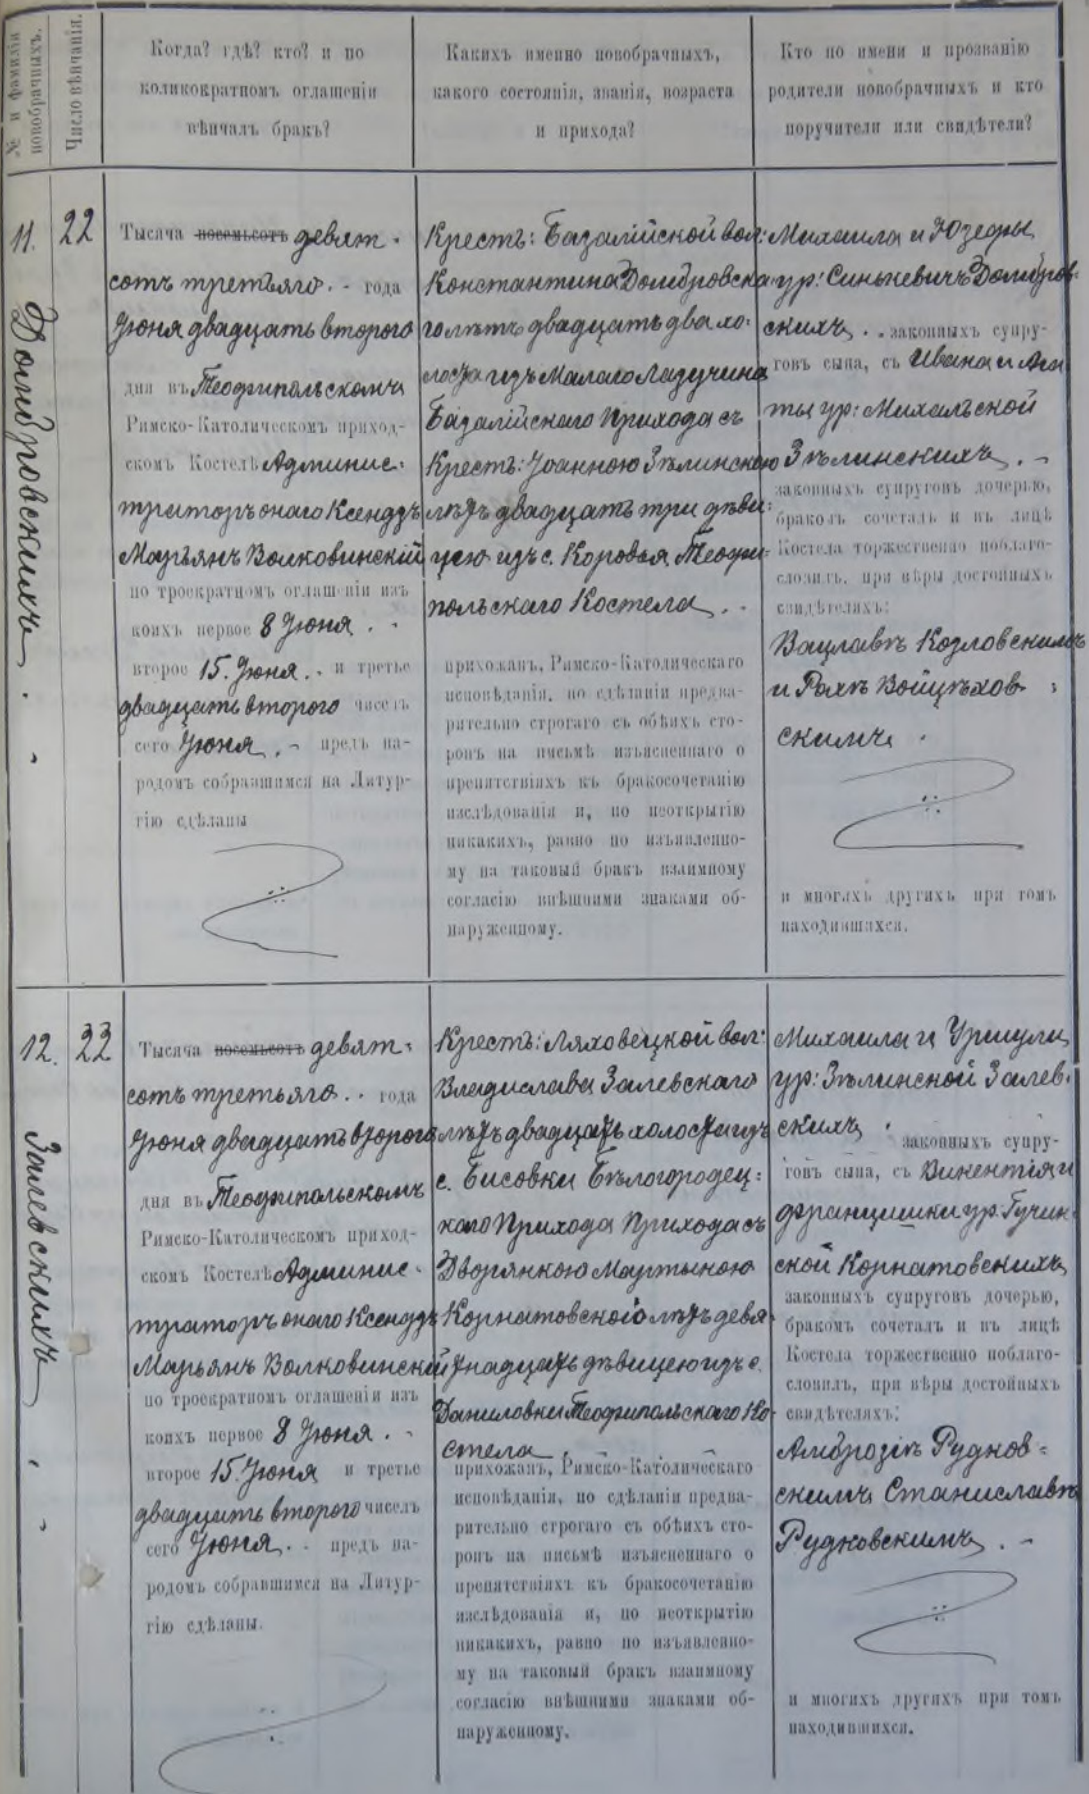 № и фамилія
новобрачныхъ.
Число вѣнчанія.
Когда? гдѣ? кто? и по
коликократномъ оглашеніи
вѣнчалъ бракъ?
Какихъ именно новобрачныхъ,
какого состоянія, званія, возраста
и прихода?
Кто по имени и прозванію
родители новобрачныхъ и кто
поручители или свидѣтели?
11.
Домбровскихъ
22
Тысяча восемьсотъ девят-
сотъ третьяго года
Іюня двадцать второго
дня въ Теофипольскомъ
Римско-Католическомъ приход-
скомъ Костелѣ Админис-
траторъ онаго Ксендзъ
Марьянъ Волковинскій
по троекратномъ оглашеніи изъ
коихъ первое 8 Іюня
второе 15. Іюня и третье
двадцать второго чиселъ
сего Іюня предъ на-
родомъ собравшимся на Литур-
гію сдѣланы
Крестъ: Базалійской вол:
Константина Домбровска
го лѣтъ двадцать два хо-
лостъ изъ Малаго Лазучина
Базалійскаго Прихода съ
Крестъ: Іоанною Зѣлинскою
лѣтъ двадцать три дѣви-
цею изъ с. Коровья Теофи-
польскаго Костела
прихожанъ, Римско-Католическаго
исповѣданія, по сдѣланіи предва-
рительно строгаго съ обѣихъ сто-
ронъ на письмѣ изъясненнаго о
препятствіяхъ къ бракосочетанію
изслѣдованія и, по неоткрытію
никакихъ, равно по изъявленно-
му на таковый бракъ взаимному
согласію внѣшними знаками об-
наруженному.
Михаила и Юзефы
ур: Синькевичъ Домбров-
скихъ законныхъ супру-
говъ сына, съ Ивана и Ага
ты ур: Михальской
Зѣлинскихъ
законныхъ супруговъ дочерью,
бракомъ сочеталъ и въ лицѣ
Костела торжественно поблаго-
словилъ, при вѣры достойныхъ
свидѣтеляхъ:
Вацлавѣ Козловскимъ
и Рохѣ Войцѣхов-
скимъ
и многихъ другихъ при томъ
находившихся.
12.
Залевскихъ
22
Тысяча восемьсотъ девят-
сотъ третьяго года
Іюня двадцать второго
дня въ Теофипольскомъ
Римско-Католическомъ приход-
скомъ Костелѣ Админис-
траторъ онаго Ксендзъ
Марьянъ Волковинскій
по троекратномъ оглашеніи изъ
коихъ первое 8 Іюня
второе 15. Іюня и третье
двадцать второго чиселъ
сего Іюня предъ на-
родомъ собравшимся на Литур-
гію сдѣланы.
Крестъ: Ляховецкой вол:
Владислава Залевскаго
лѣтъ двадцать холостъ изъ
с. Бисовки Бѣлогородец-
каго Прихода Прихода съ
Дворянкою Мартыною
Корнатовскою лѣтъ девя-
тнадцать дѣвицею изъ с.
Даниловки Теофипольскаго Ко-
стела
прихожанъ, Римско-Католическаго
исповѣданія, по сдѣланіи предва-
рительно строгаго съ обѣихъ сто-
ронъ на письмѣ изъясненнаго о
препятствіяхъ къ бракосочетанію
изслѣдованія и, по неоткрытію
никакихъ, равно по изъявленно-
му на таковый бракъ взаимному
согласію внѣшними знаками об-
наруженному.
Михаила и Уршули
ур: Зѣлинской Залев-
скихъ законныхъ супру-
говъ сына, съ Викентія и
Францишки ур: Гучин-
ской Корнатовскихъ
законныхъ супруговъ дочерью,
бракомъ сочеталъ и въ лицѣ
Костела торжественно поблаго-
словилъ, при вѣры достойныхъ
свидѣтеляхъ:
Амброзіѣ Рудков-
скимъ Станиславѣ
Рудковскимъ
и многихъ другихъ при томъ
находившихся.